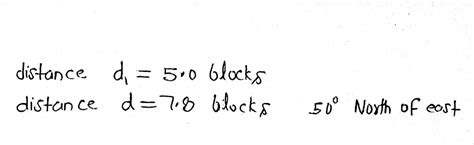 distance d₁ = 5.0 blocks
distance d = 7.8 blocks 50° North of east